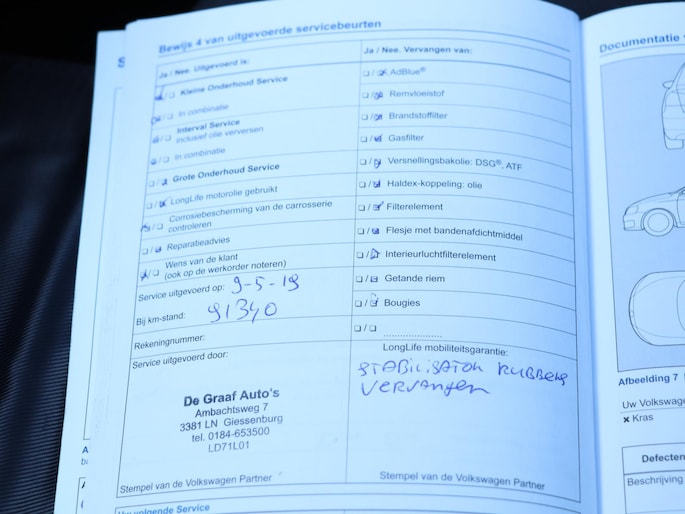 Bewijs 4 van uitgevoerde servicebeurten
Ja / Nee. Uitgevoerd is:
Kleine Onderhoud Service
In combinatie
Interval Service
inclusief olie verversen
In combinatie
Grote Onderhoud Service
LongLife motorolie gebruikt
Corrosiebescherming van de carrosserie
controleren
Reparatieadvies
Wens van de klant
(ook op de werkorder noteren)
Service uitgevoerd op: 9-5-19
Bij km-stand: 91340
Rekeningnummer:
Service uitgevoerd door:
De Graaf Auto's
Ambachtsweg 7
3381 LN Giessenburg
tel. 0184-653500
LD71L01
Stempel van de Volkswagen Partner
Ja / Nee. Vervangen van:
AdBlue®
Remvloeistof
Brandstoffilter
Gasfilter
Versnellingsbakolie: DSG®, ATF
Haldex-koppeling: olie
Filterelement
Flesje met bandenafdichtmiddel
Interieurluchtfilterelement
Getande riem
Bougies
LongLife mobiliteitsgarantie:
STABILISATOR RUBBERS
VERVANGEN
Stempel van de Volkswagen Partner
Uw volgende Service
Documentatie
Afbeelding 7
Uw Volkswage
× Kras
Defecten
Beschrijving